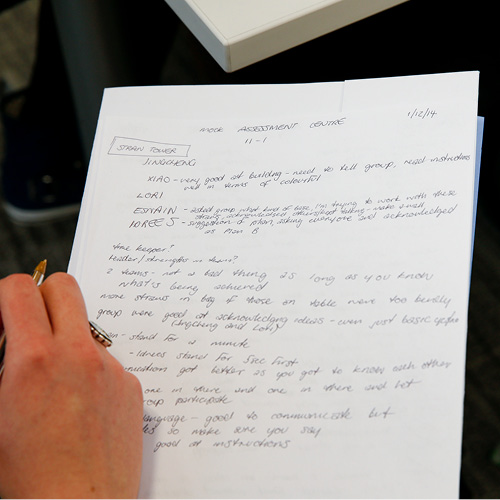 1/12/14
MOCK ASSESSMENT CENTRE
11-1
STRAW TOWER
JINGCHENG
XIAO - very good at building - need to tell group, read instructions
well in terms of colourful
LORI
ESMAIN - asked group what kind of base, I'm trying to work with these
straws, acknowledged others kept talking - make small
IDREES - suggestion of plan, asking everyone and acknowledged
as Plan B
time keeper?
leader/strengths in team?
2 teams - not a bad thing as long as you know
what's being achieved
more straws in bag if those on table were too bendy
group were good at acknowledging ideas - even just basic
(Jingcheng and Lori)
- stand for a minute
- Idrees stand for 5 sec first
got better as you got to know each other
one in there and one in there and let
group participate
language - good to communicate but
so make sure you say
good at instructions